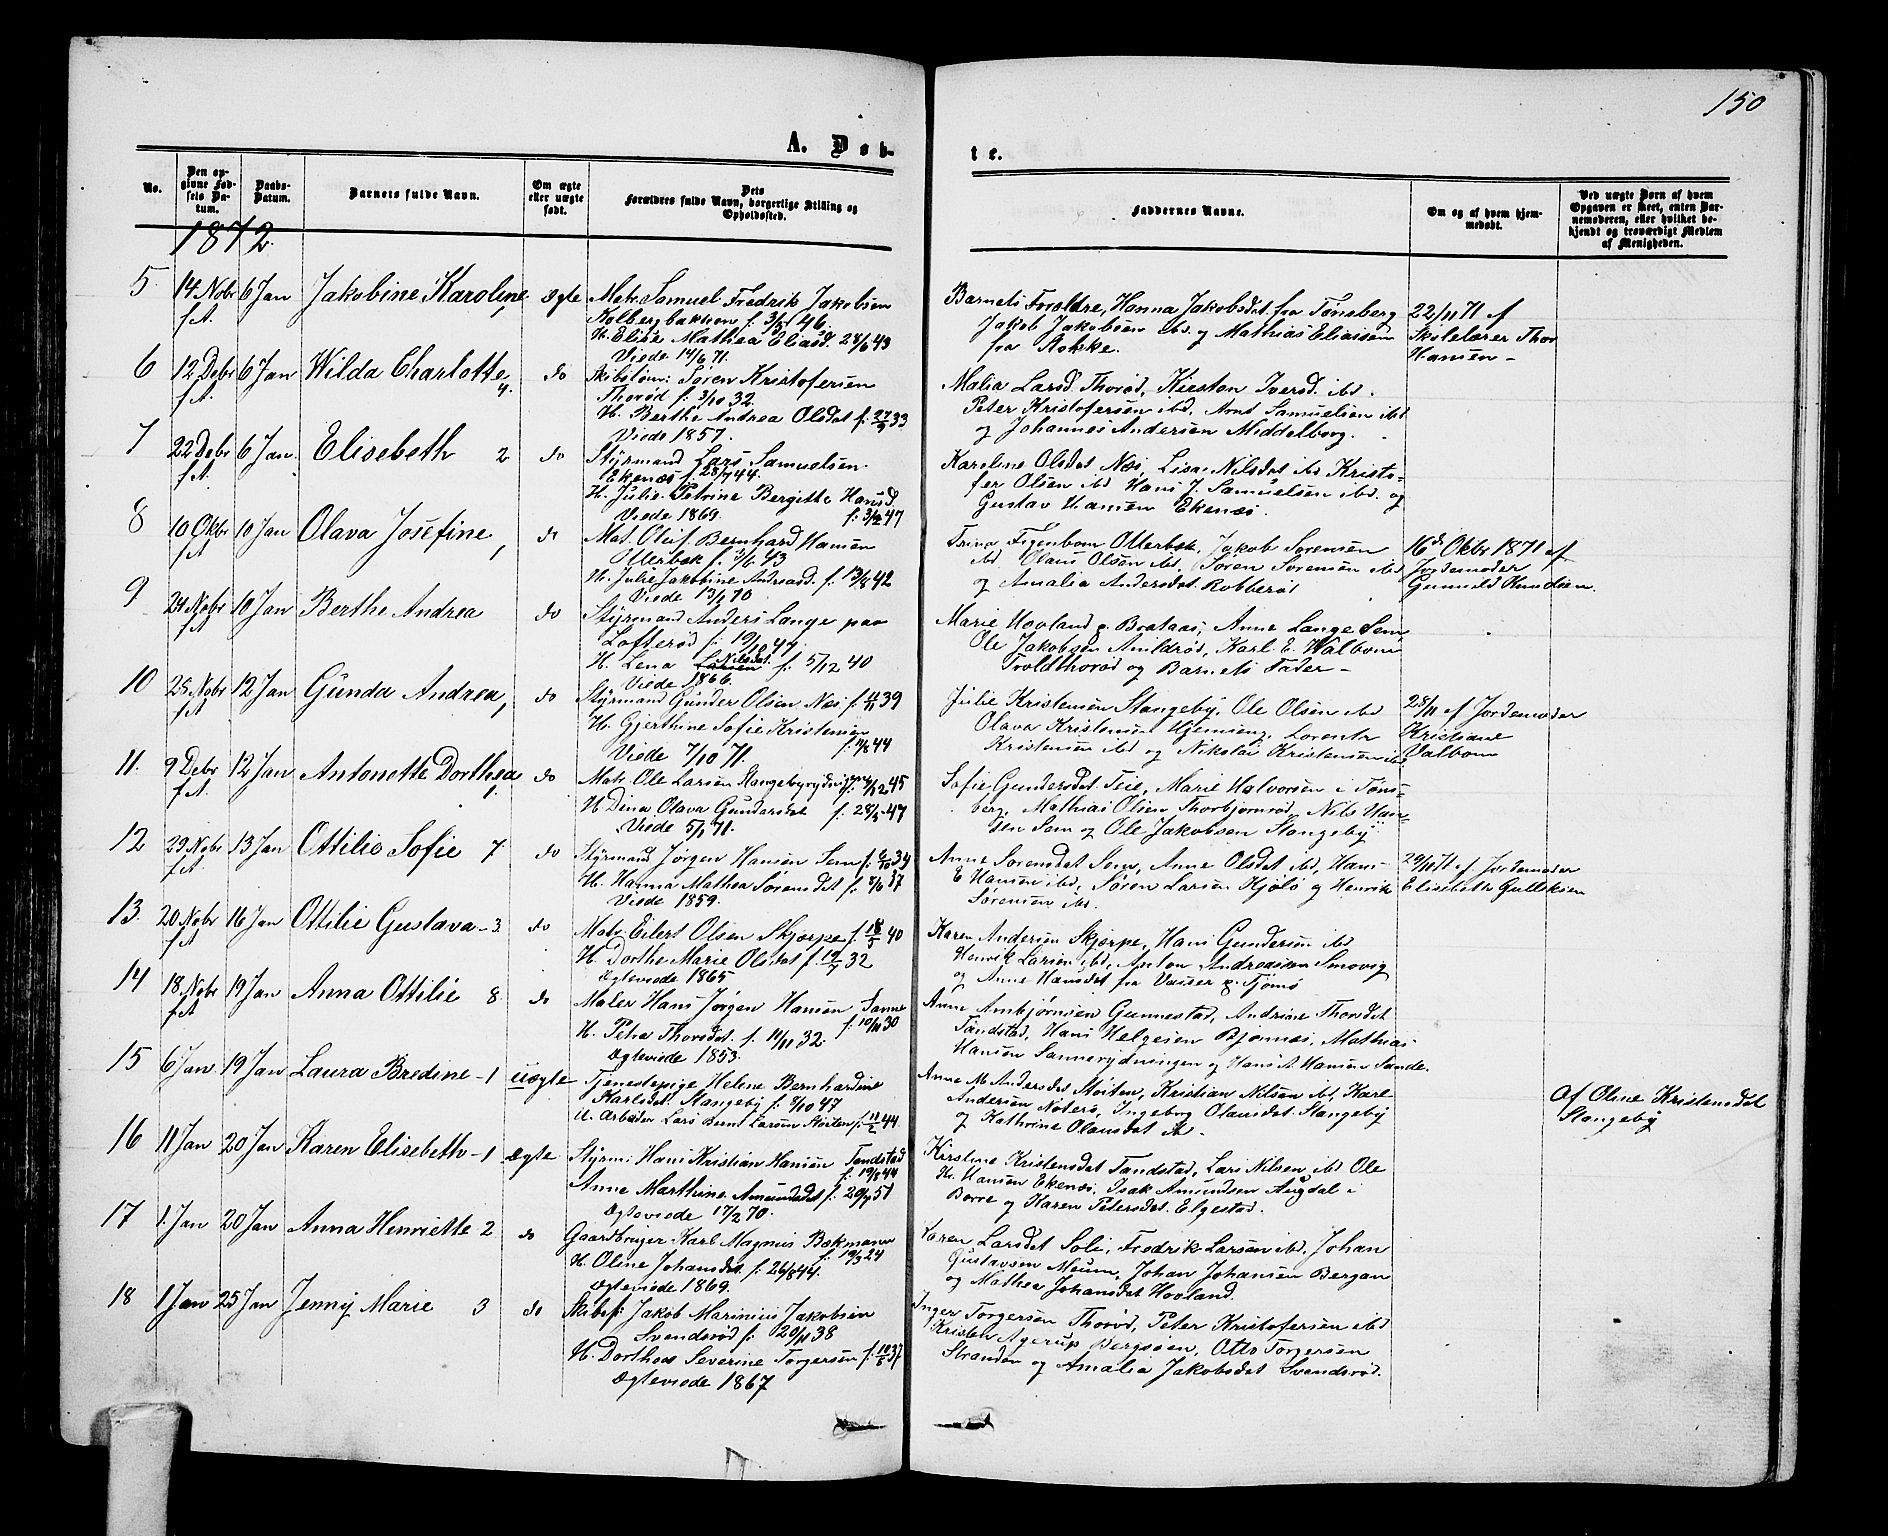 150
A. Døb-
te.
No.
Den op-
givne Fød-
sels Da-
tum.
Daabs-
Datum.
Barnets fulde Navn.
Om ægte
eller uægte
født.
Dets
Forældres fulde Navn, borgerlige Stilling og
Opholdssted.
Faddernes Navne.
Om og af hvem hjem-
medøbt.
Ved uægte Børn af hvem
Opgaven er skeet, enten Bar-
nemoderen, eller hvilket be-
kjendt og troværdigt Medlem
af Menigheden.
1872.
5. 14 Nobr f.A. 6 Jan Jakobine Karoline, ægte
Matr. Samuel Fredrik Jakobsen
Kolbergbakken f. 3/5 46.
H. Elise Mathea Eliasd. 28/6 43
Viede 14/6 71.
Barnets Forældre, Hanna Jakobsdat. fra Tønsberg
Jakob Jakobsen ibd. og Mathias Eliassen
fra Stokke.
22/11 71 af
Skolelærer Thor
Hansen -
6 12 Debr f.A. 6 Jan Wilda Charlotte 4. do
Skibstøm: Søren Kristofersen
Thorød f: 3/10 32.
H. Berthe Andrea Olsdat f: 27/9 33
Viede 1857.
Malia Larsd. Thorød, Kiersten Iversd. ibd.
Peter Kristofersen ibd, Arnt Samuelsen ibd
og Johannes Andersen Middelborg.
7 22 Debr f.A. 6 Jan. Elisebeth 2 do
Styrmand Lars Samuelsen
Ekenæs f: 28/7 44.
H. Julie Petrine Bergitte Hansd.
Viede 1869. f: 3/12 47
Karoline Olsdat Næs, Lisa Nilsdat ibd Kristo-
fer Olsen ibd Hans J. Samuelsen ibd. og
Gustav Hansen Ekenæs.
8 10 Okbr f.A. 10 Jan Olava Josefine, do
Mat. Oluf Bernhard Hansen
Otterbæk f. 3/6 43
H. Julie Jakobine Andreasd. f. 13/8 42
Viede 13/2 70
Trina Figenbom Otterbæk, Jakob Sørensen
ibd, Olaus Olsen ibd. Søren Sørensen ibd
og Amalia Andersdat. Robberøl
16de Okbr 1871 af
Jordemoder
Gunnild Knudsen.
9 24 Nobr f.A. 10 Jan Berthe Andrea do
Styrmand Anders Lange paa
Lofterød f: 19/10 44
H. Lena Nilsdat. f: 5/12 40
Viede 1866.
Marie Hovland p. Brataas, Anne Lange Sem,
Ole Jakobsen Amildrød, Karl E. Walbom
Troldthorød og Barnets Fader -
10 25 Nobr f.A. 12 Jan Gunda Andrea, do
Styrmand Gunder Olsen Næs f. 4/11 39
H. Gjerthine Sofie Kristensen
Viede 7/10 71. f: 11/8 44
Julie Kristensen Stangeby, Ole Olsen ibd
Olava Kristensen Hjemseng, Lorents
Kristensen ibd og Nikolai Kristensen ibd
28/11 af Jordemoder
Kristiane
Valbom
11. 9 Debr f.A. 12 Jan Antonette Dorthea, do
Matr. Ole Larsen Stangebyrydn. f: 12 45
H. Dina Olava Gundersdat f. 28/5 47
Viede 5/1 71.
Sofie Gundersdat Teie, Marie Halvorsen i Tøns-
berg, Mathias Olsen Thorbjørnrød, Nils Han-
sen Sem og Ole Jakobsen Stangeby
12 29 Nobr f.A. 13 Jan Ottilie Sofie 7 do
Styrmand Jørgen Hansen Sem f: 6/10 34
H. Hanna Mathea Sørensdat f. 8/6 37
Viede 1859.
Anne Sørensdat Sem, Anne Olsdat ibd, Hans
E Hansen ibd, Søren Larsen Kjølø og Henrik
Sørensen ibd.
29/11 71 af Jordemoder
Elisebeth Gulliksen
13. 20 Nobr f.A. 16 Jan Ottilie Gustava - 3 do
Matr. Eilert Olsen Skjærpe f. 18/5 40
H. Dorthe Marie Olsdat f. 19/7 32
Ægteviede 1865
Karen Andersen Skjærpe, Hans Gundersen ibd
Henrik Larsen ibd, Anton Andreassen Smovig
og Anne Hansdat fra Vauser p. Tjømø
14 18. Nobr f.A. 19 Jan Anna Ottilie 8. do
Maler Hans Jørgen Hansen Sanne
H. Petra Thorsdat. f. 14/11 32. f. 10/11 30
Ægteviede 1853.
Anne Ambjørnsen Gunnestad, Andrine Thorsdat
Tandstad, Hans Helgesen Bjønnes, Mathias
Hansen Sannerydningen og Hans A. Hansen Sande.
15 6 Jan 19 Jan Laura Bredine - 1 uægte
Tjenestepige Helene Bernhardine
Karlsdat. Stangeby f. 8/10 47
U. Arbeider Lars Bernt Larsen Støiten f. 11/2 44
Anne M. Andersdat Støiten, Kristian Nilsen ibd, Karl
Andersen Nøterø, Ingeborg Olausdat. Stangeby
og Kathrine Olausdat st -
Af Oline Kristensdat
Stangeby
16 11 Jan 20 Jan Karen Elisebeth - 1 ægte
Styrm: Hans Kristian Hansen Tandstad
f. 19/8 44
Anne Marthine Amundsdat f. 20/7 51
Ægteviede 17/2 70.
Kirstine Kristensdat Tandstad, Lars Nilsen ibd Ole
Kr. Hansen Ekenæs, Isak Amundsen Augdal i
Borre og Karen Petersdat. Elgestad.
17 1. Jan 20 Jan Anna Henriette 2 do
Gaardbruger Karl Magnus Bækmann
H. Oline Johansdat f. 26/8 44. f: 19/3 24
Ægteviede 1869.
Karen Larsdat Soli, Fredrik Larsen ibd, Johan
Gustavsen Meum, Johan Johansen Bergan
og Mathea Johansdat Hovland.
18 1 Jan 25 Jan Jenny Marie 3 do
Skibsf: Jakob Marinius Jakobsen
Svendsrød f: 20/11 38
H. Dorthea Severine Torgersen f. 10/5 37
Ægteviede 1867
Inger Torgersen Thorød, Peter Kristofersen ibd
Kristen Agerup Bergsøen, Otto Torgersen
Stranden og Amalia Jakobsdat Svendsrød.